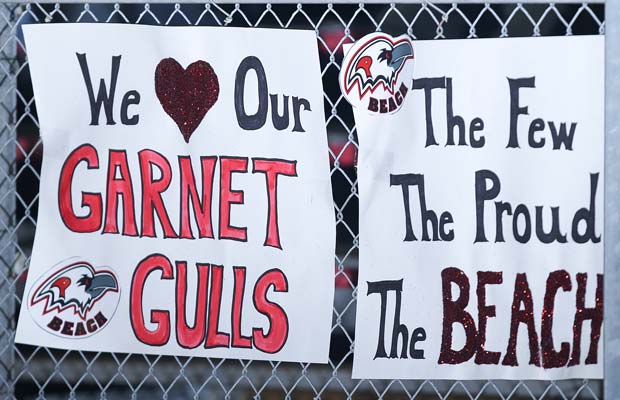 We Our
GARNET
GULLS
BEACH
BEACH
The Few
The Proud
The BEACH